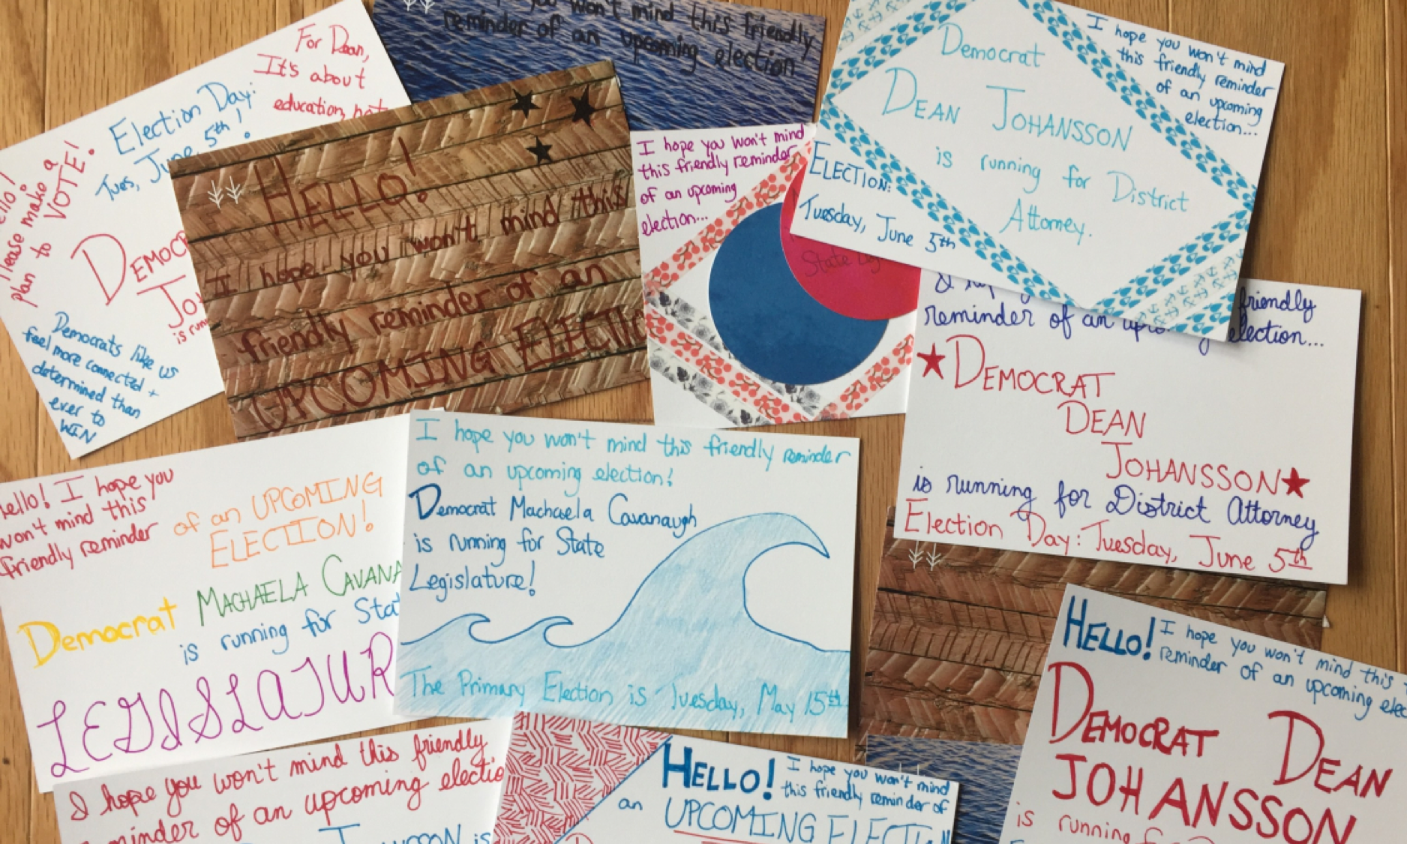 For Dean,
It's about
education, not
Election Day:
Tues, June 5th!
Please make a
plan to VOTE!
DEMOC
JO
is runn
Democrats like us
feel more connected +
determined than
ever to
WIN
you won't mind this friendly
reminder of an upcoming election
HELLO!
I hope you won't mind this
friendly reminder of an
UPCOMING ELECTIO
I hope you won't mind
this friendly reminder
of an upcoming
election...
State Leg
Democrat
DEAN JOHANSSON
is running for District
Attorney.
I hope you won't mind
this friendly reminder
of an upcoming
election...
ELECTION:
Tuesday, June 5th
friendly
reminder of an upco election...
DEMOCRAT
DEAN
JOHANSSON
is running for District Attorney
Election Day: Tuesday, June 5th
Hello! I hope you
won't mind this
friendly reminder
of an UPCOMING
ELECTION!
Democrat MACHAELA CAVANA
is running for Stat
LEGISLATUR
I hope you won't mind this friendly reminder
of an upcoming election!
Democrat Machaela Cavanaugh
is running for State
Legislature!
The Primary Election is Tuesday, May 15th
HELLO! I hope you won't mind this
reminder of an upcoming elec
DEMOCRAT DEAN
JOHANSSON
is running
I hope you won't mind this friendly
reminder of an upcoming electio
HELLO! I hope you won't mind
this friendly reminder of
an UPCOMING ELECTION